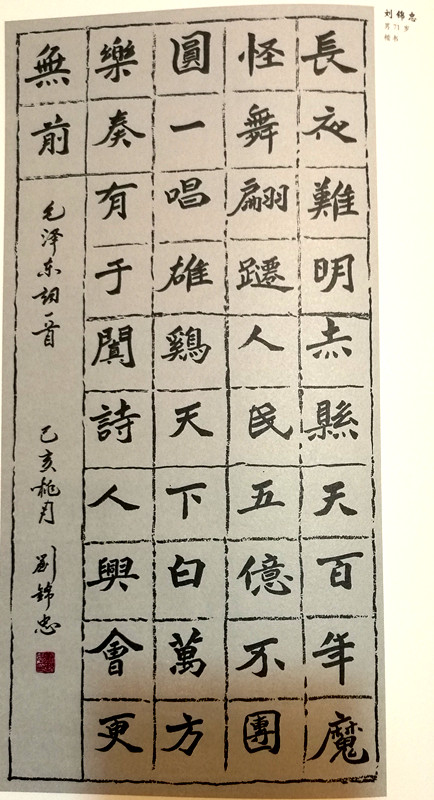 刘锦忠
男 71岁
楷书
長夜難明赤縣天百年魔
怪舞翩躚人民五億不團
圓一唱雄鷄天下白萬方
樂奏有于闐詩人興會更
無前
毛泽东词一首 己亥桃月 劉錦忠